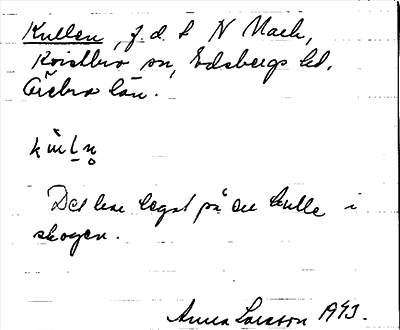 Kullen, f. d. t N Mach,
Kvistbro sn, Edsbergs hd.
Örebro län.
Det har legat på en kulle i
skogen.
Anna Larsson 1943.